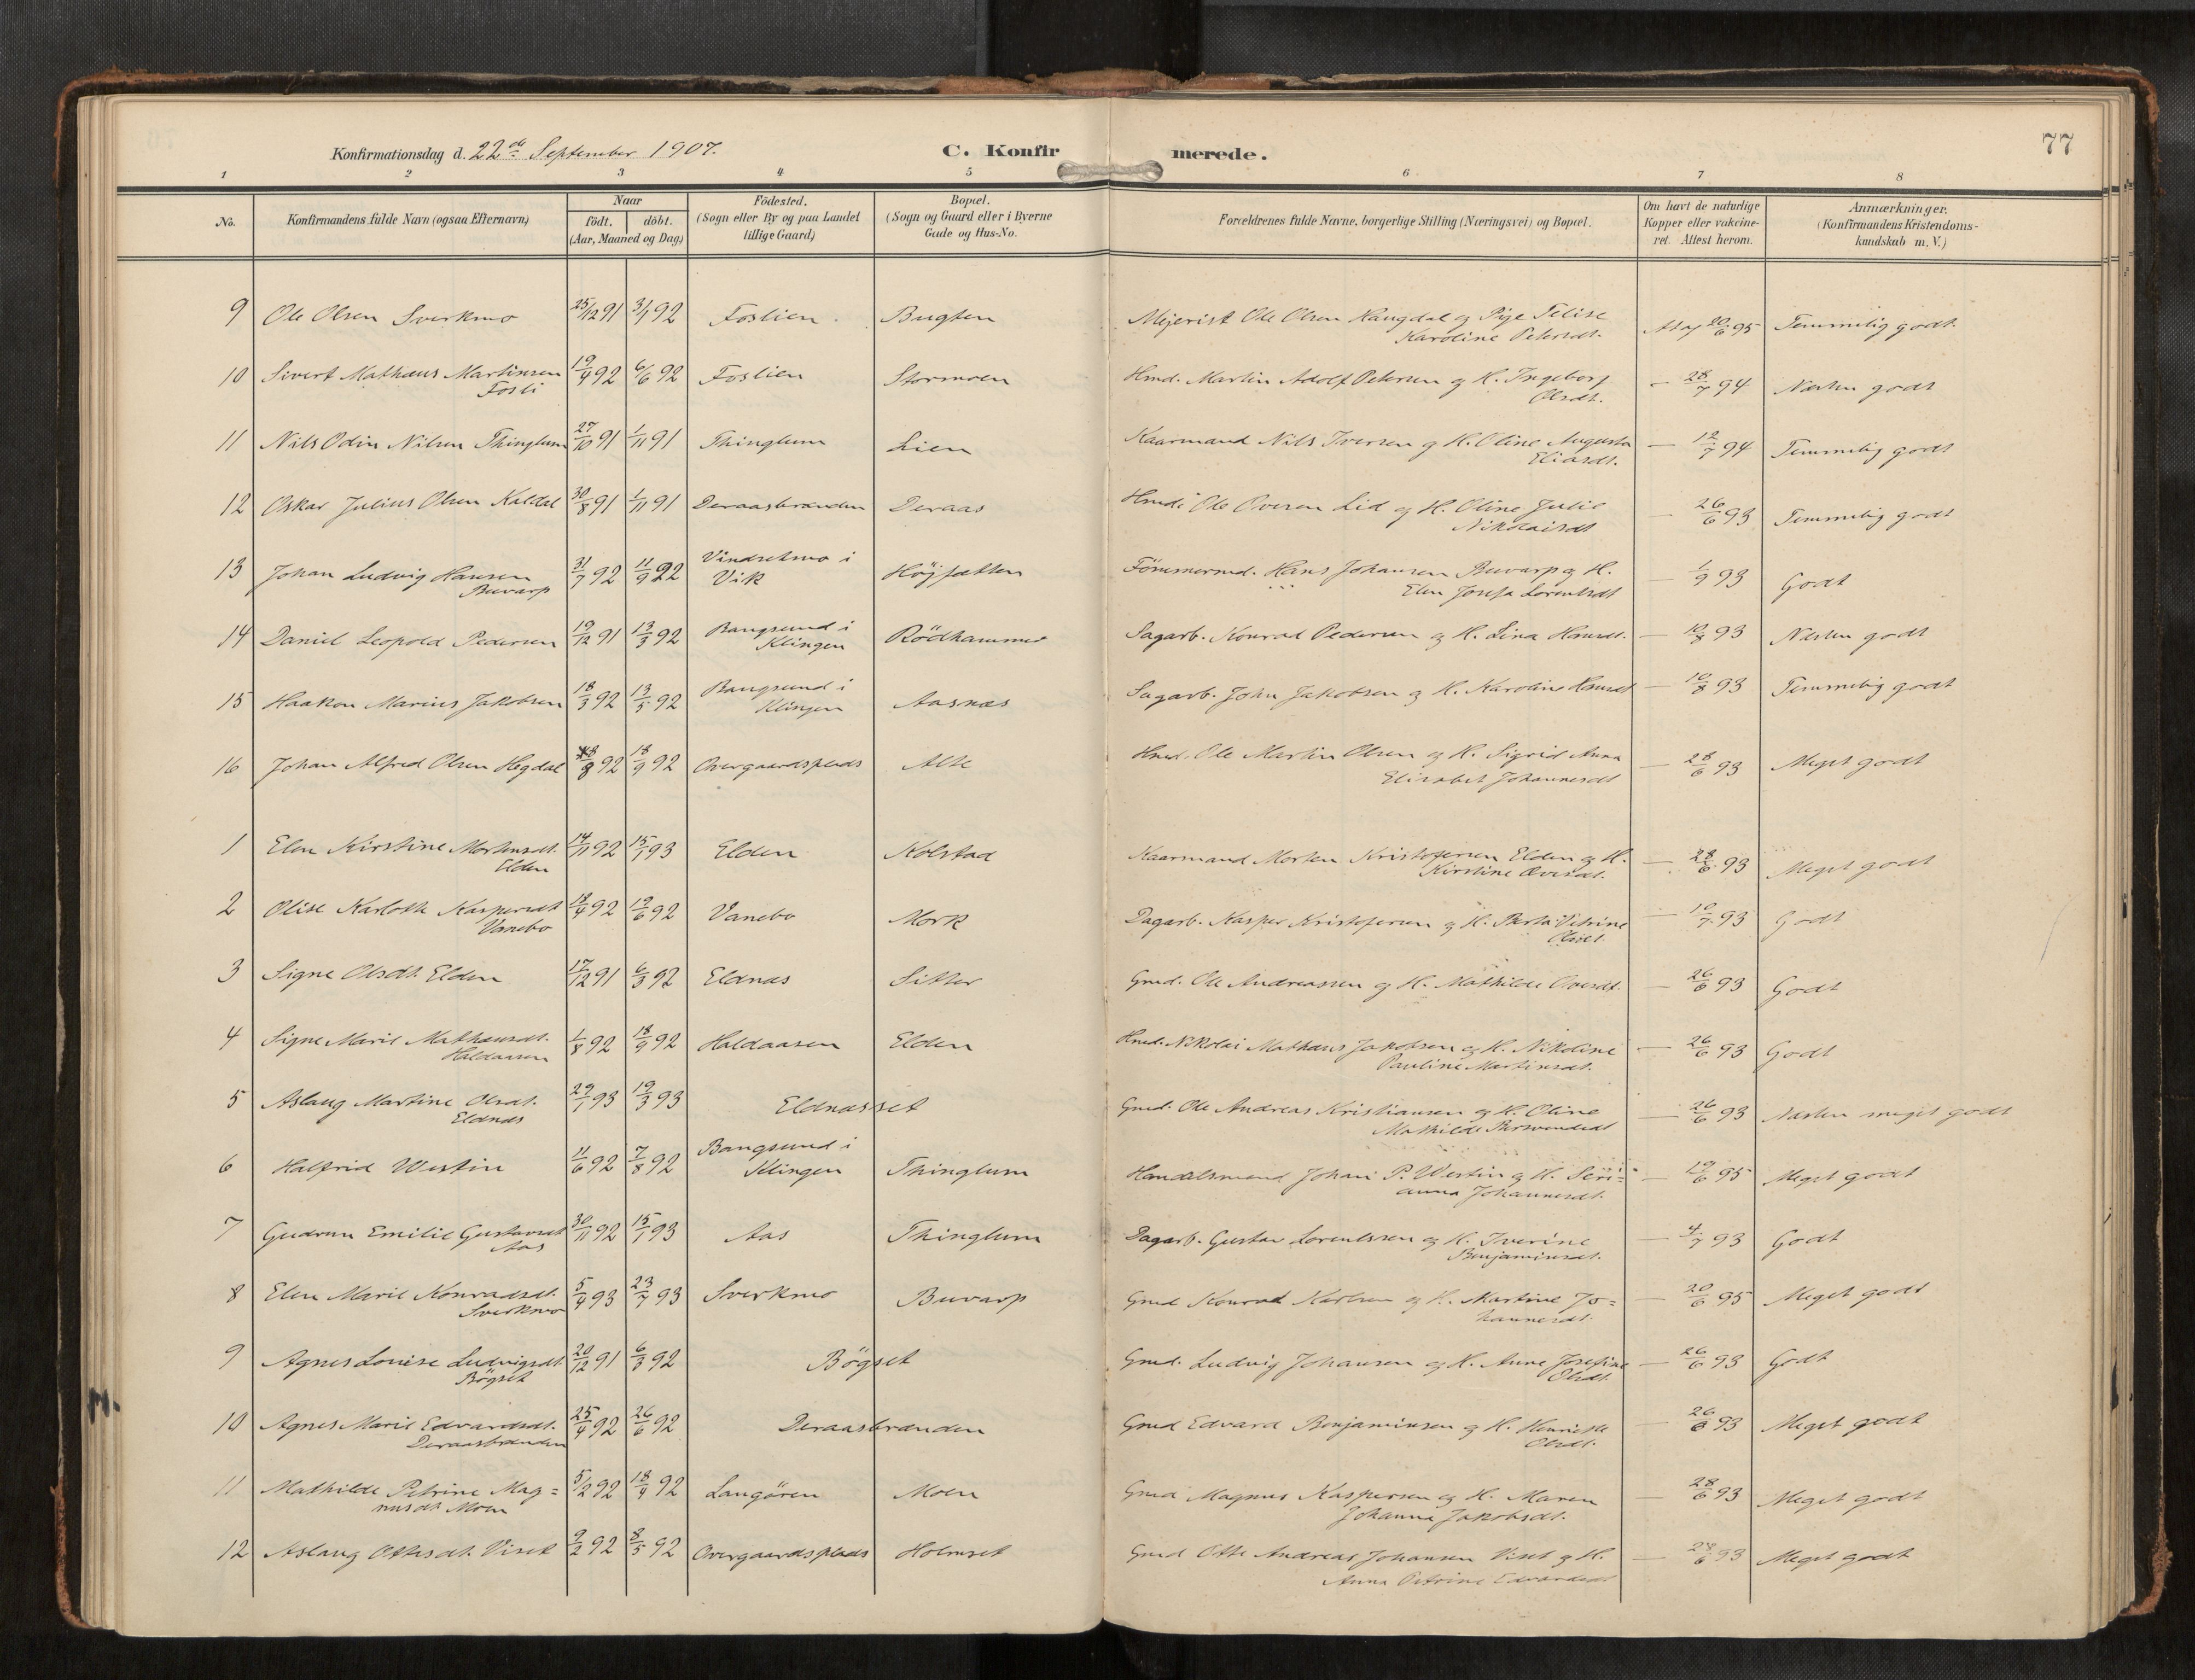 77
Konfirmationsdag d. 22de September 1907. C. Konfirmerede.
1 2 3 4 5 6 7 8
No. Konfirmandens fulde Navn (ogsaa Efternavn) Naar født. døbt. (Aar, Maaned og Dag) Fødested. (Sogn eller By og paa Landet tillige Gaard) Bopæl. (Sogn og Gaard eller i Byerne Gade og Hus-No. Forældrenes fulde Navne, borgerlige Stilling (Næringsvei) og Bopæl. Om havt de naturlige Kopper eller vakcineret. Attest herom. Anmærkninger. (Konfirmandens Kristendomskundskab m. V.)
9 Ole Olsen Sverkmo 25/12 91 3/1 92 Foslien Bugten Mejerist Ole Olsen Haugdal og Pige Felise
Karoline Petersdt. 20/6 95 Temmelig godt.
10 Sivert Mathæus Martinsen 19/4 92 6/6 92 Foslien Stormoen Hmd. Martin Adolf Petersen og H. Ingeborg
Fosli Olsdt. — 28/7 94 Næsten godt
11 Nils Odin Nilsen Thinglum 27/10 91 1/11 91 Thinglum Lien Kaarmand Nils Iversen og H. Oline Augusta
Eliasdt. — 12/7 94 Temmelig godt
12 Oskar Julius Olsen Kaldal 30/8 91 1/11 91 Deraasbrænden Deraas Hmd. Ole Oversen Lid og H. Oline Julie
Nikolaisdt — 26/6 93 Temmelig godt
13 Johan Ludvig Hansen 31/7 92 11/9 92 Vindsetmo i Vik Højfætten Tömmermd. Hans Johansen Buvarp og H.
Buvarp Elen Josefa Lorentsdt — 1/9 93 Godt
14 Daniel Leopold Pedersen 19/12 91 13/3 92 Bangsund i Klingen Rödhammer Sagarb. Konrad Pedersen og H. Lina Hansdt. — 10/8 93 Næsten godt
15 Haakon Marius Jakobsen 18/3 92 13/5 92 Bangsund i Klingen Aasnæs Sagarb. John Jakobsen og H. Karoline Hansdt — 10/8 93 Temmelig godt
16 Johan Alfred Olsen Hegdal 8 92 18/9 92 Overgaardsplads Alte Hmd. Ole Martin Olsen og H. Sigrid Anna
Elisabet Johannesdt — 28/6 93 Meget godt
1 Elen Kirstine Mortensdt. 14/11 92 15/1 93 Elden Kolstad Kaarmand Morten Kristofersen Elden og H.
Elden Kirstine Oversdt. — 28/6 93 Meget godt
2 Olise Karlotte Kaspersdt 18/4 92 19/6 92 Vanebo Mork Dagarb. Kasper Kristofersen og H. Berta Petrine
Vanebo Olsdt — 10/7 93 Godt
3 Signe Olsdt. Elden 17/12 91 6/3 92 Eldnæs Sitter Gmd. Ole Andreassen og H. Mathilde Oversdt. — 26/6 93 Godt
4 Signe Marie Mathæusdt. 1/8 92 18/9 92 Haldaasen Elden Hmd. Nikolai Mathæus Jakobsen og H. Nikoline
Haldaasen Pauline Martinsdt. — 26/6 93 Godt
5 Aslaug Martine Olsdt. 29/1 93 19/3 93 Eldnæsset Gmd. Ole Andreas Kristiansen og H. Oline
Eldnæs Mathilde — 26/6 93 Næsten meget godt
6 Halfrid Westin 11/6 92 7/8 92 Bangsund i Klingen Thinglum Handelsmand Johan P. Westin og H. Seri=
anna Johannesdt. — 19/6 95 Meget godt
7 Gudrun Emilie Gustavsdt 30/11 92 15/1 93 Aas Thinglum Dagarb. Gustav Lorentssen og H. Iverine
Aas Benjaminsdt. — 4/7 93 Godt
8 Elen Marie Konradsdt. 5/4 93 23/7 93 Sverkmo Buvarp Gmd Konrad Karlsen og H. Martine Jo=
Sverkmo hannesdt. — 20/6 95 Meget godt
9 Agnes Lovise Ludvigsdt. 20/12 91 6/3 92 Bögset Gmd. Ludvig Johansen og H. Anne Josefine
Bögset Olsdt. — 26/6 93 Godt
10 Agnes Marie Edvardsdt. 25/4 92 26/6 92 Deraasbrænden Gmd Edvard Benjaminsen og H. Henriette
Deraasbrænden Olsdt. — 26/6 93 Meget godt
11 Mathilde Petrine Mag= 5/2 92 18/4 92 Langören Moen Gmd Magnus Kaspersen og H. Maren
nusdt. Moen Johanna Jakobsdt. — 28/6 93 Meget godt
12 Aslaug Ottesdt. Viset 9/2 92 8/5 92 Overgaardsplads Holmset Gmd Otte Andreas Johansen Viset og H.
Anna Petrine Edvardsdt — 28/6 93 Meget godt